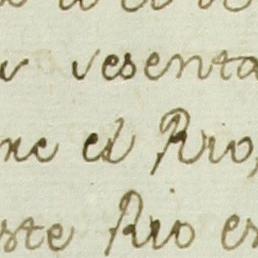 vesenta
ne el Rio,
ste Rio es